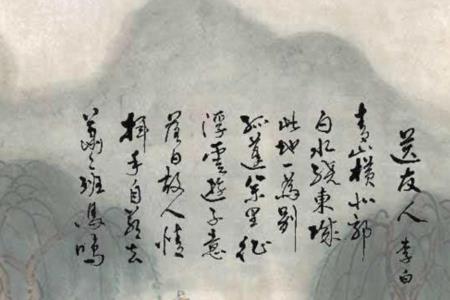 送友人 李白
青山横北郭
白水繞東城
此地一為別
孤蓬萬里征
浮雲遊子意
落日故人情
揮手自茲去
蕭蕭班馬鳴